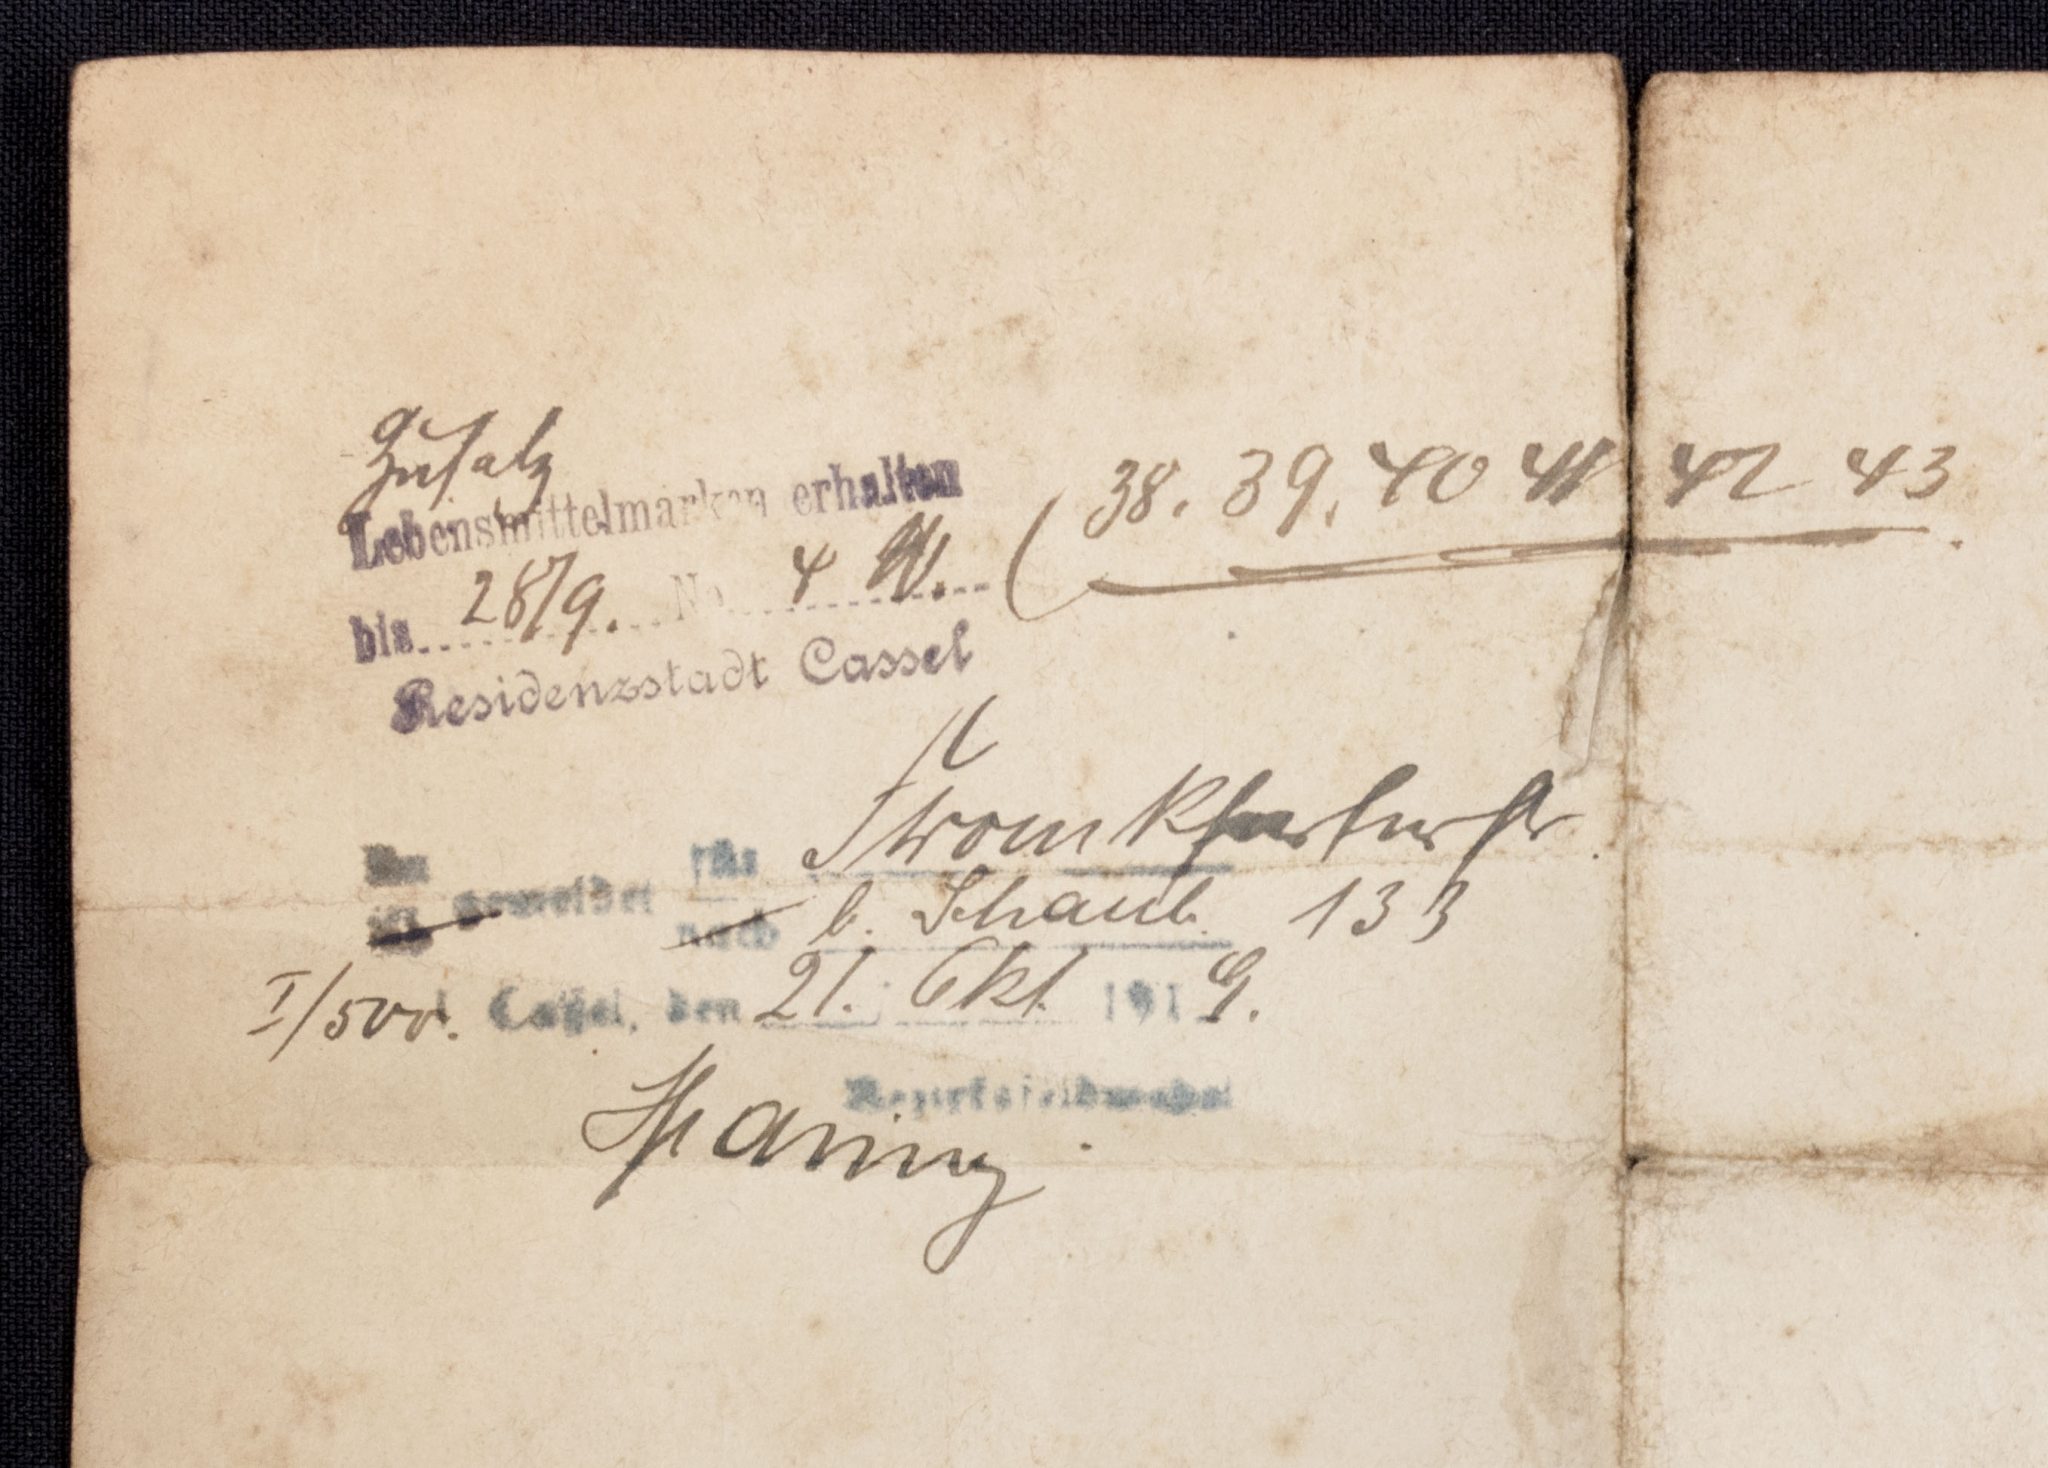 Zusatz
Lebensmittelmarken erhalten
bis 28/9. No 4 W. (38. 39. 40 41 42 43
Residenzstadt Cassel
An für
gemeldet
nach b. Schaub. 133
I/500. Cassel, den 21. Okt. 1919.
Bezirksfeldwebel